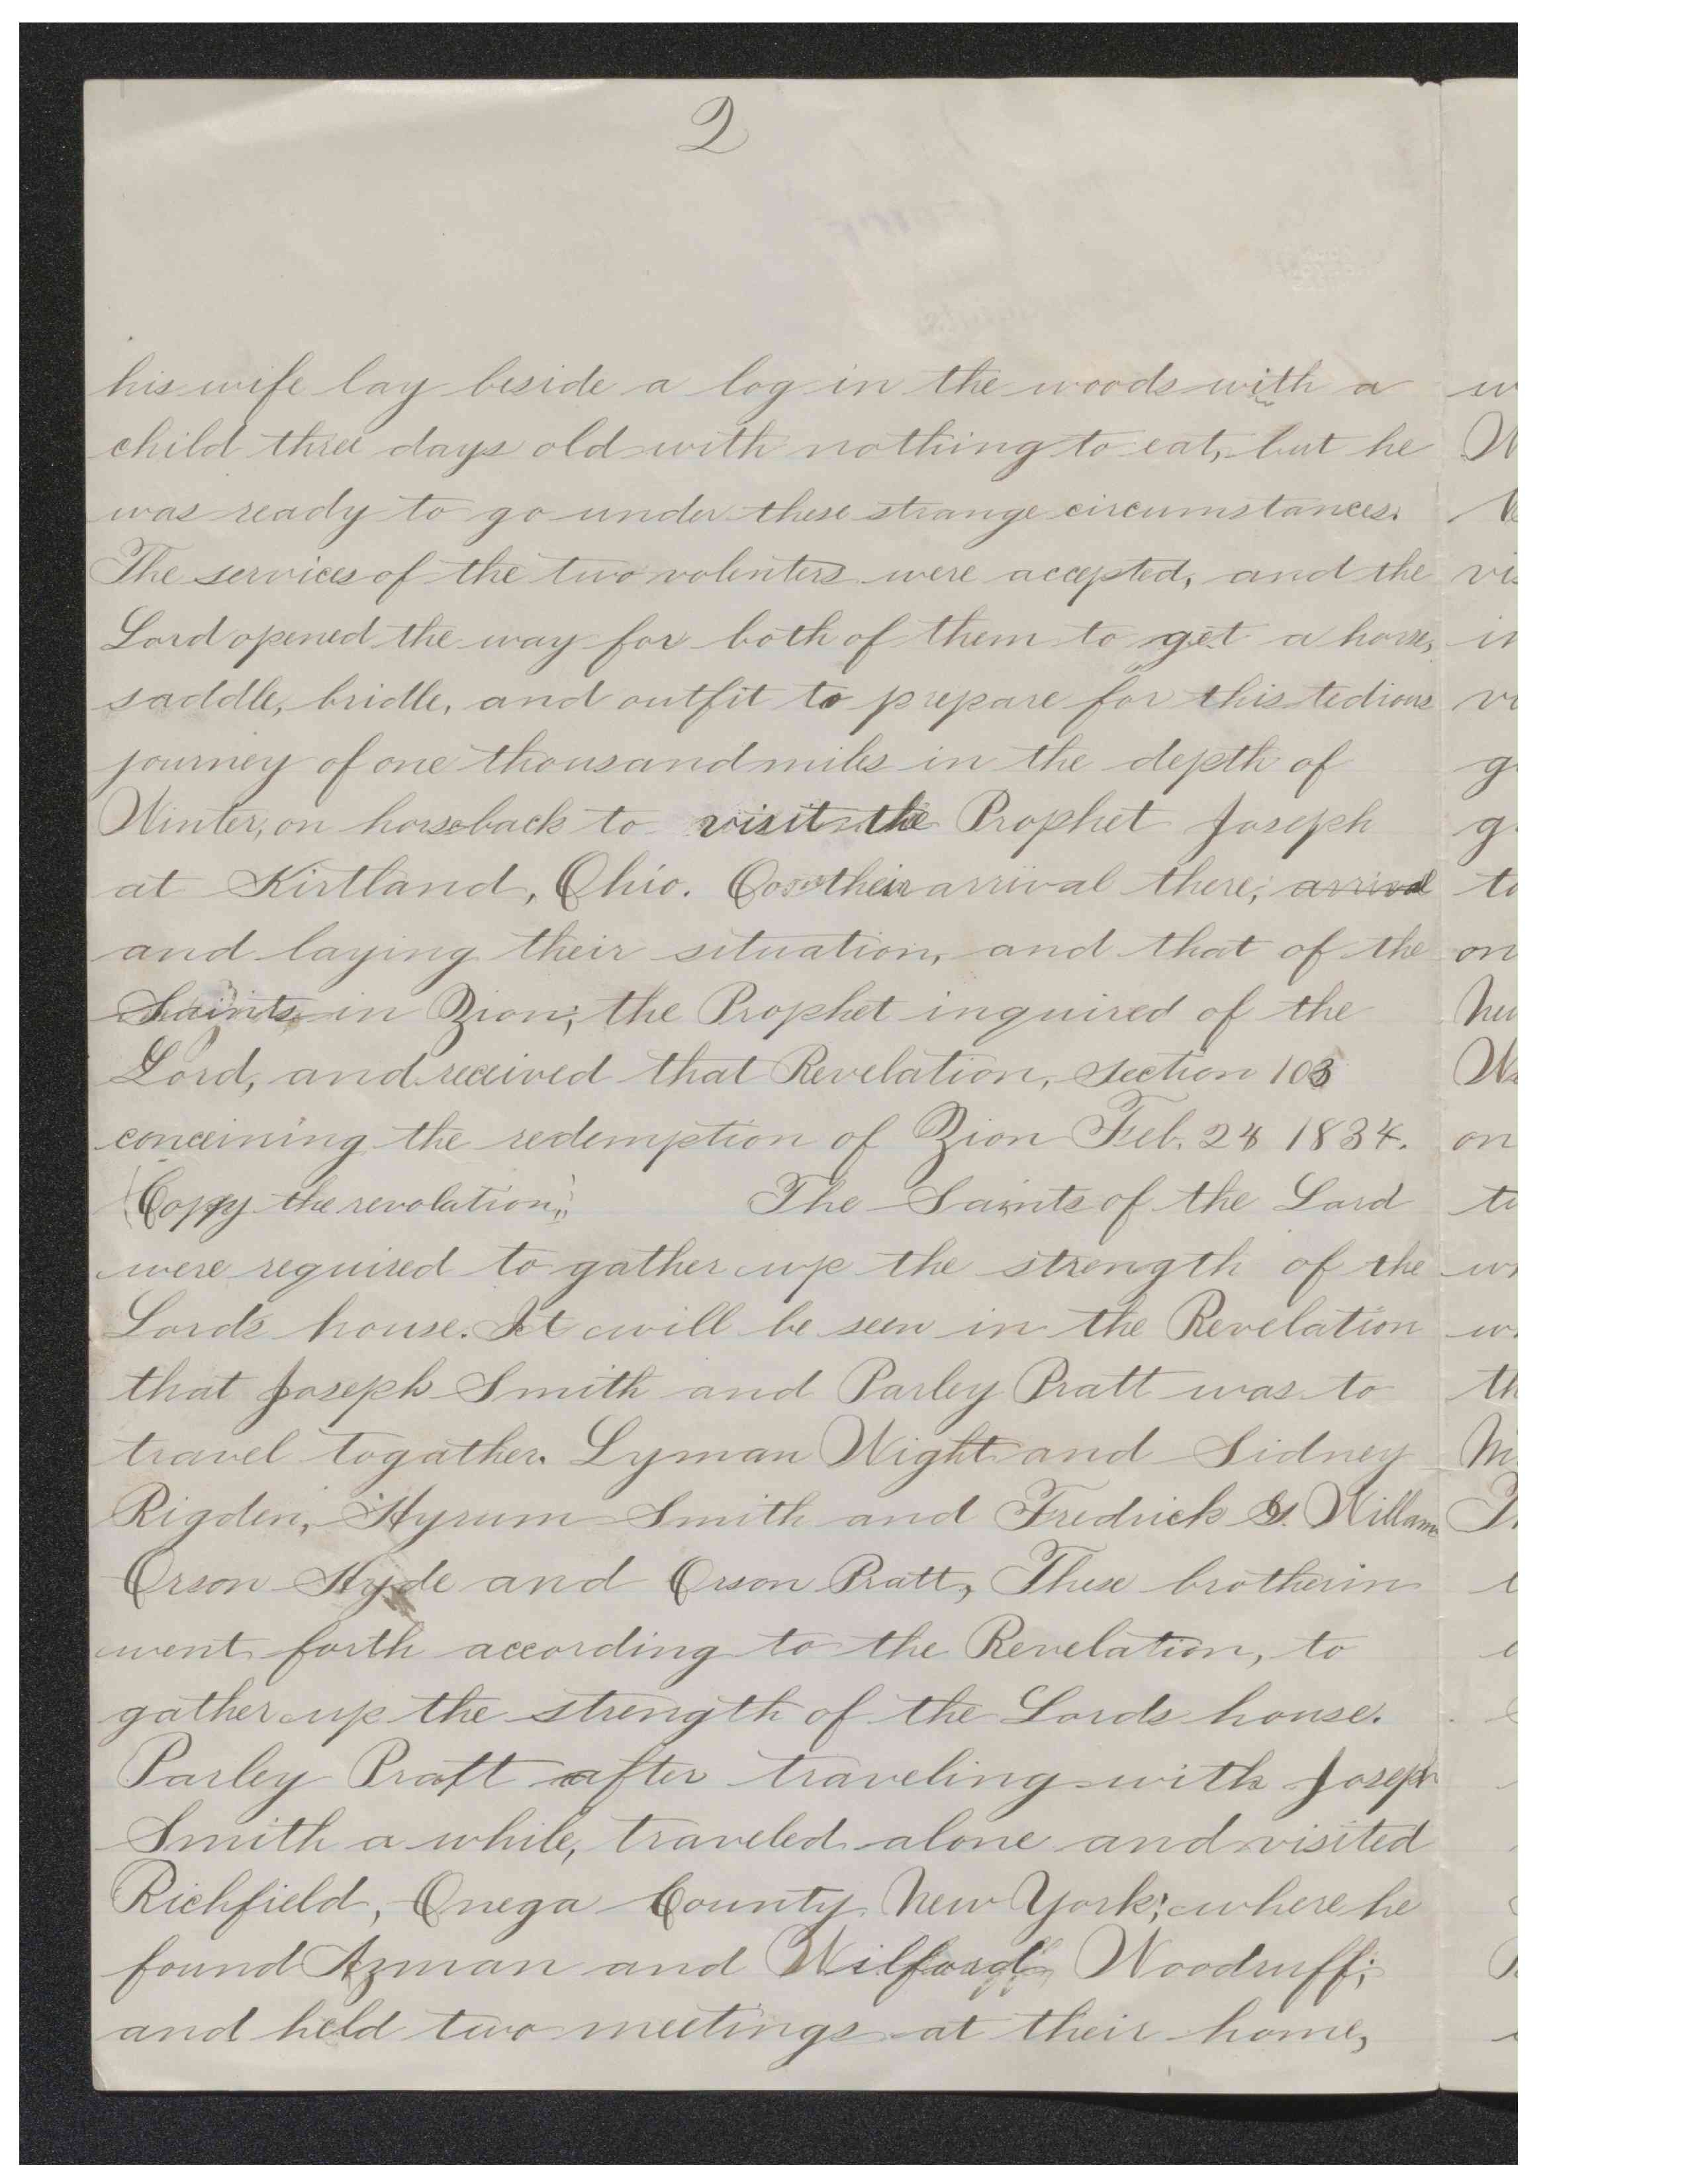 2
his wife lay beside a log in the woods with a
child three days old with nothing to eat, but he
was ready to go under these strange circumstances.
The services of the two volenters were accepted, and the
Lord opened the way for both of them to get a horse,
saddle, bridle, and outfit to prepare for this tedious
journey of one thousand miles in the depth of
Winter, on horseback to visit the Prophet Joseph
at Kirtland, Ohio. On their arrival there, arrival
and laying their situation, and that of the
Saints in Zion; the Prophet inquired of the
Lord, and received that Revelation, section 103
concerning the redemption of Zion Feb. 24 1834.
(Copy the revolation,) The Saints of the Lord
were required to gather up the strength of the
Lords house. It will be seen in the Revelation
that Joseph Smith and Parley Pratt was to
travel togather. Lyman Wight and Sidney
Rigden, Hyrum Smith and Fredrick G. Willams
Orson Hyde and Orson Pratt, These brotherin
went forth according to the Revelation, to
gather up the strength of the Lords house.
Parley Pratt after traveling with Joseph
Smith a while, traveled alone and visited
Richfield, Onega County New York; where he
found Azman and Wilford Woodruff;
and held two meetings at their home,